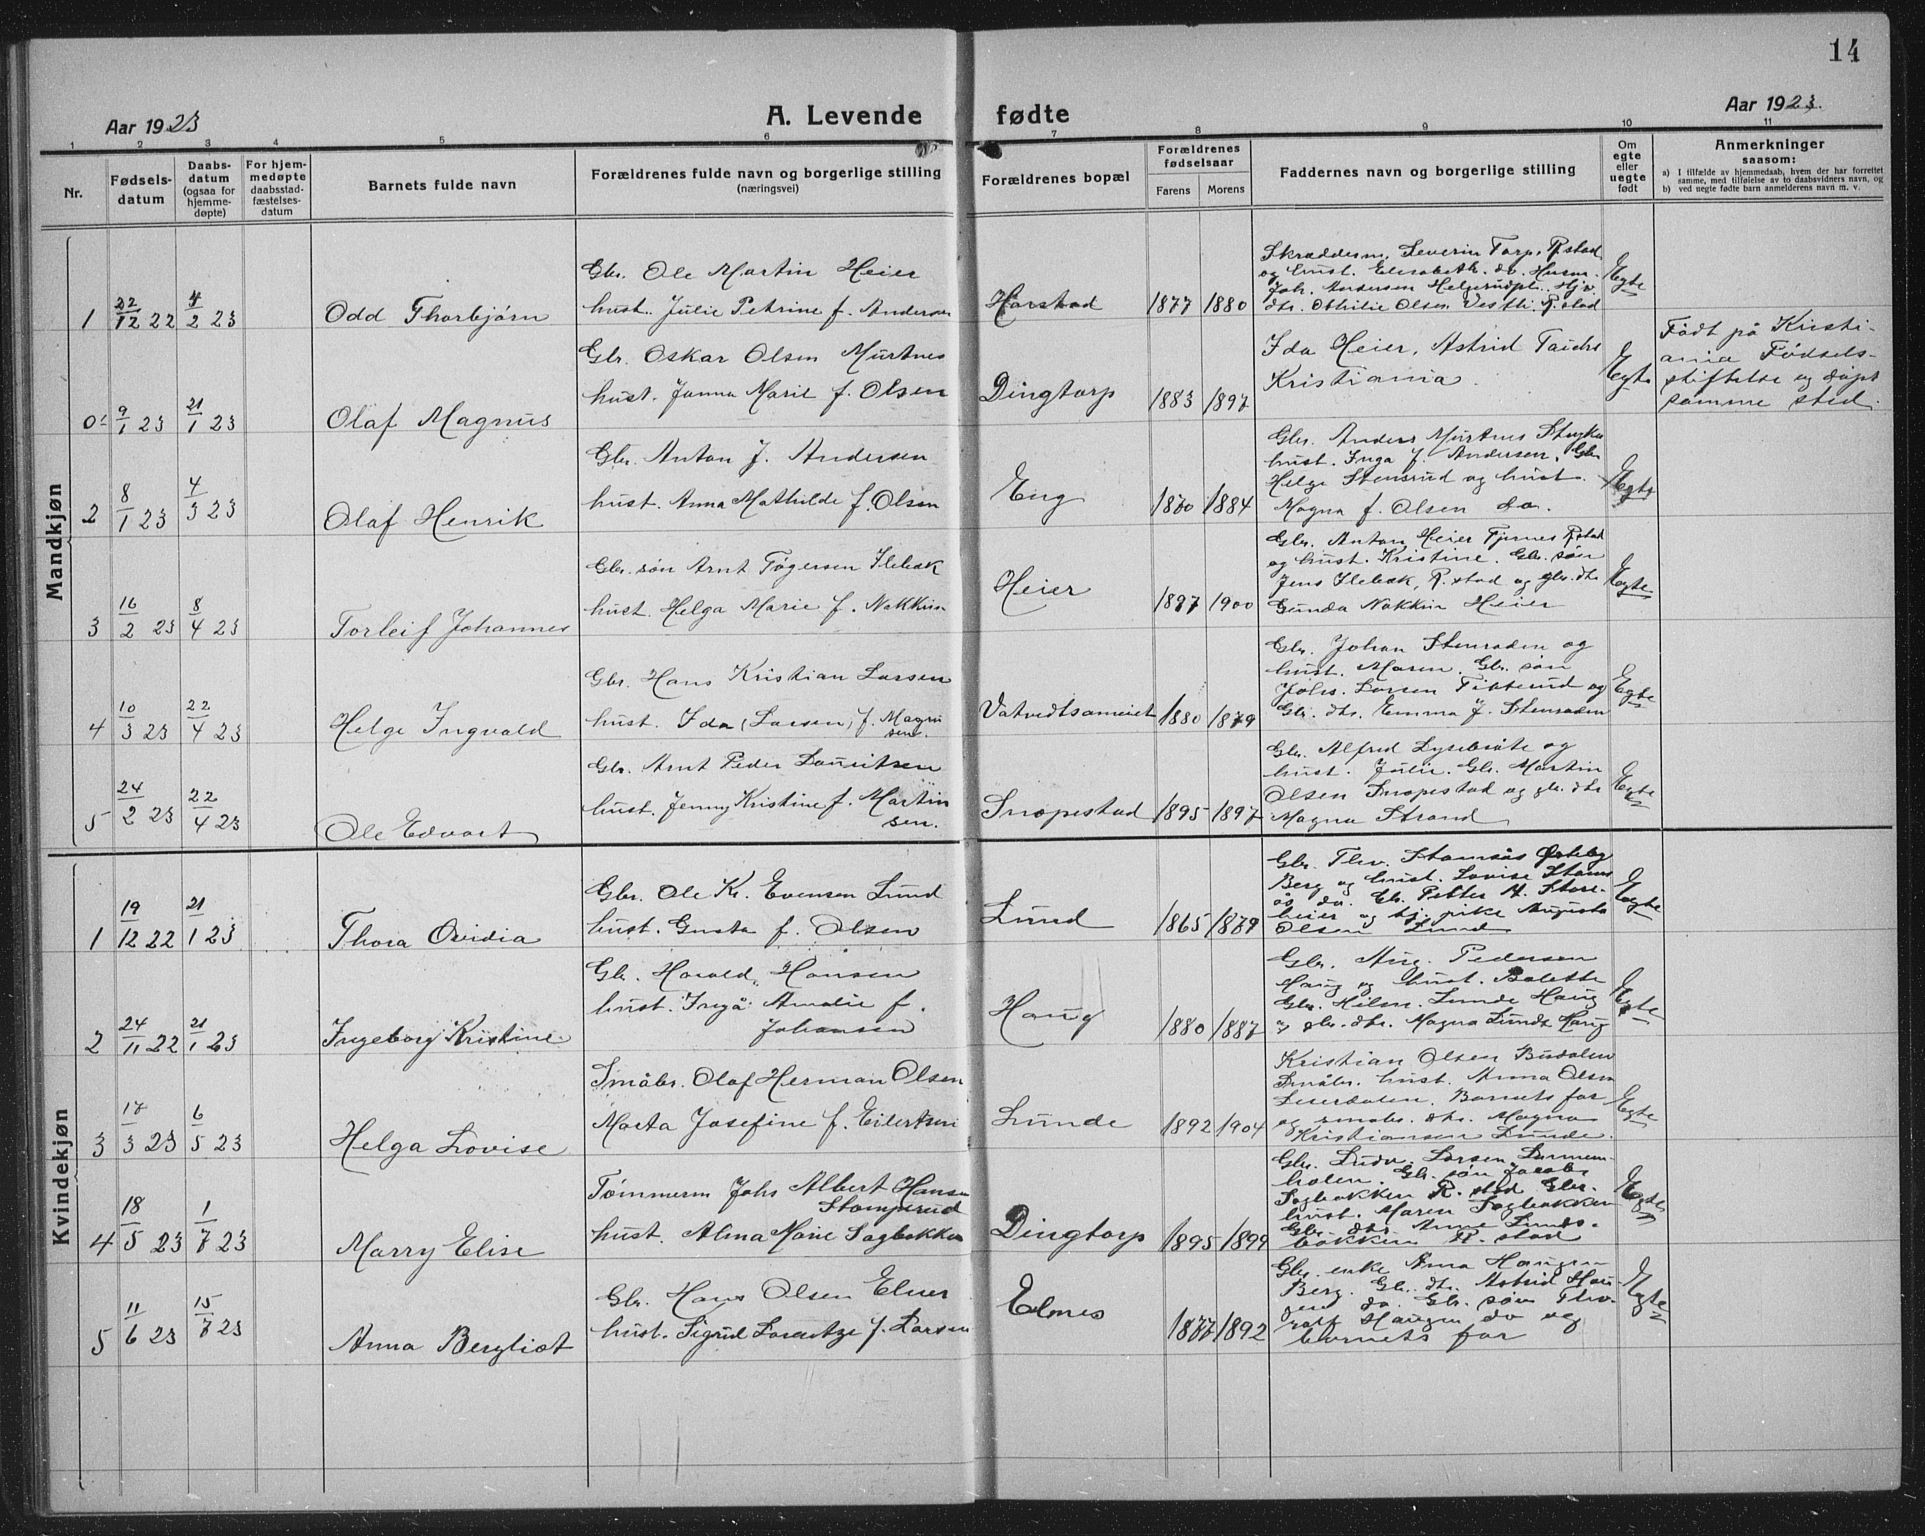 14
Aar 1923
A. Levende fødte
Aar 1923.
1 2 3 4 5 6 7 8 9 10 11
Nr.
Fødsels-
datum
Daabs-
datum
(ogsaa for
hjemme-
døpte)
For hjem-
medøpte
daabsstad-
fæstelses-
datum
Barnets fulde navn
Forældrenes fulde navn og borgerlige stilling
(næringsvei)
Forældrenes bopæl
Forældrenes
fødselsaar
Farens Morens
Faddernes navn og borgerlige stilling
Om
egte
eller
uegte
født
Anmerkninger
saasom:
a) I tilfælde av hjemmedaab, hvem der har forrettet
samme, med tilføielse av to daabsvidners navn, og
b) ved uegte fødte barn anmelderens navn m. v.
Mandkjøn
1 22/12 22 4/2 23 Odd Thorbjørn
Gbr. Ole Martin Heier
hust. Julie Petrine f. Andersen
Harstad 1877 1880
Skræderm. Severin Torp, R.stad
og hust. Elisabeth. do. Husm.
Joh. Andersen Helgerudpl. Hjv.
dtr. Othilie Olsen Vestli. R.stad
Egte
0 9/1 23 21/1 23 Olaf Magnus
Gbr. Oskar Olsen Murtnes
hust. Janna Marie f. Olsen
Dingtorp 1883 1897
Ida Heier, Astrid
Kristiania.
Egte
Født på Kristi-
ania Fødsels-
stiftelse og døpt
samme sted.
2 8/1 23 4/3 23 Olaf Henrik
Gbr. Anton J. Andersen
hust. Anna Mathilde f. Olsen
Eng 1870 1884
Gbr. Anders Murtnes
hust. Inga f. Andersen. Gbr
Helge Stensrud og hust.
Magna f. Olsen do.
Egte
3 16/2 23 8/4 23 Torleif Johannes
Gbr. søn Arnt Tøgersen Ilebæk
hust. Helga Marie f. Nakkim
Heier 1897 1900
Gbr. Anton Heier Tjernes R.stad
og hust. Kristine. Gbr. søn
Jens Ilebæk, R.stad og gbr. dtr
Gunda Nakkim Heier
Egte
4 10/3 23 22/4 23 Helge Ingvald
Gbr. Hans Kristian Larsen
hust. Ida (Larsen) f. Magnu
sen.
Vatvedtsameiet 1880 1879
Gbr. Johan Stensraden og
hust. Maren. Gbr. søn
Johs. Larsen Tikkerud og
Gbr. dtr. Emma J. Stensraden
Egte
5 24/2 23 22/4 23 Ole Edvart
Gbr. Arnt Peder Lauritsen
hust. Jenny Kristine f. Martin
sen.
Snopestad 1895 1897
Gbr. Alfred Lysebråte og
hust. Julie. Gbr. Martin
Olsen Snopestad og gbr. dtr
Magna Strand
Egte
Kvindekjøn
1 19/12 22 21/1 23 Thora Ovidia
Gbr. Ole Kr. Evensen Lund
hust. Gusta f. Olsen
Lund 1865 1879
Gbr. Thv. Stamsås
Berg og hust. Lovise Stams
ås do. Gbr. Petter N. Store-
heier og tj. pike Augusta
Olsen Lund
Egte
2 24/11 22 21/1 23 Ingeborg Kristine
Gbr. Harald Hansen
hust. Inga Amalie f.
Johansen
Haug 1880 1887
Gbr. Aug. Pedersen
Haug og hust. Bolette
Gbr. Hilm. Lunde Haug
og gbr. dtr. Magna Lunde Haug
Egte
3 17/3 23 6/5 23 Helga Lovise
Småbr. Olaf Herman Olsen
Marta Josefine f. Eilertsen
Lunde 1892 1904
Kristian Olsen Budalen
Småbr. hust. Anna Olsen
Leirdalen. Barnets far
og småbr. dtr. Magna
Kristiansen Lunde.
Egte
4 18/5 23 1/7 23 Marry Elise
Tømmerm Johs Albert Hansen
Stomperud
hust. Alma Marie Sagbakken
Dingtorp 1895 1899
Gbr. Ludv. Larsen
holen. Gbr. søn Jacob
Sagbakken R.stad Gbr.
hust. Maren Sagbakken
Gbr. dtr. Anne Lunds-
bakken R.stad
Egte
5 11/6 23 15/7 23 Anna Bergliot
Gbr. Hans Olsen Elnes
hust. Sigrid Lorentze f. Larsen
Elnes 1877 1892
Gbr. enke Anna Haugen
Berg. Gbr. dtr. Astrid Hau-
gen do. Gbr. søn Tho-
ralf Haugen do og
barnets far
Egte